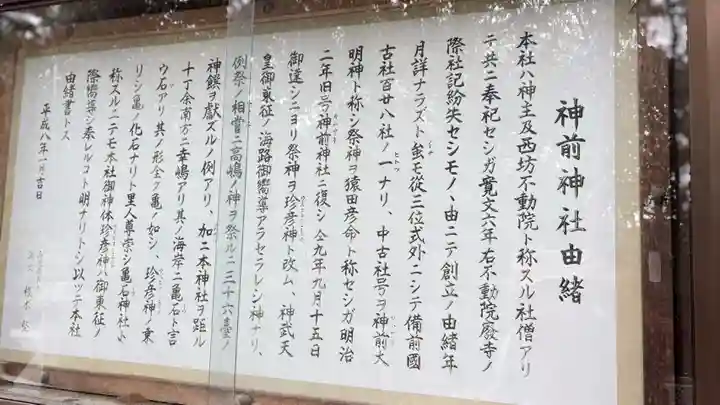 神前神社由緒
本社ハ神主及西坊不動院ト称スル社僧アリ
テ共ニ奉祀セシガ寛文六年右不動院廃寺ノ
際社記紛失セシモノヽ由ニテ創立ノ由緒年
月詳ナラズト虽モ従三位式外ニシテ備前國
古社百廿八社ノ一ナリ、中古社号ヲ神前大
明神ト称シ祭神ヲ猿田彦命ト称セシガ明治
二年旧号神前神社ニ復シ 仝九年九月十五日
御達シニヨリ祭神ヲ珍彦神ト改ム、神武天
皇御東征ノ海路御嚮導アラセラレシ神ナリ、
例祭ノ相嘗ニ高嶋ノ神ヲ祭ルニ三十六臺ノ
神饌ヲ献ズルノ例アリ、加ニ本神社ヲ距ル
十丁余南方ニ幸嶋アリ其ノ海岸ニ亀石ト言
ウ石アリ其ノ形全ク亀ノ如シ、珍彦神ノ乗
リシ亀ノ化石ナリト里人尊崇シ亀石神社ト
称スルニテモ本社御神体珍彦神ハ御東征ノ
際嚮導シ奉レルコト明ナリトシ以ッテ本社
由緒書トス
平成八年一月廿日